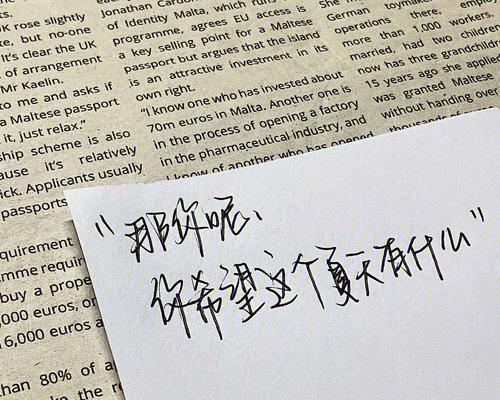 K rose slightly
ke, but no-one
It's clear the UK
of arrangement
Mr Kaelin.
to me and asks if
a Maltese passport
it, just relax."
ship scheme is also
ause it's relatively
ick. Applicants usually
passports
quirement
mme requir
buy a prope
,000 euros, or
16,000 euros a
han 80% of a
Jonathan Cardon
of Identity Malta, which runs
programme, agrees EU access is
a key selling point for a Maltese
passport but argues that the island
is an attractive investment in its
own right.
"I know one who has invested about
70m euros in Malta. Another one is
in the process of opening a factory
in the pharmaceutical industry, and
I know of another who has opened
She
German boymaker, emplo
operations there,
more than 1,000 workers.
married, had two children
now has three grandchildren
15 years ago she applied
was granted Maltese
without handing over
thousands of
“那你呢、
你希望这个夏天有什么”